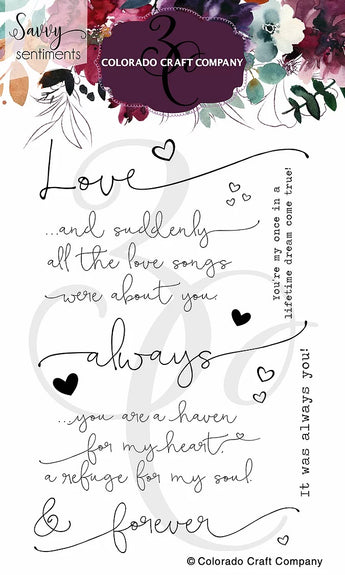 Savvy
sentiments
3C
COLORADO CRAFT COMPANY
Love
...and suddenly
all the love songs
were about you.
You're my once in a
lifetime dream come true!
always
...you are a haven
for my heart,
a refuge for my soul.
It was always you!
& forever
© Colorado Craft Company